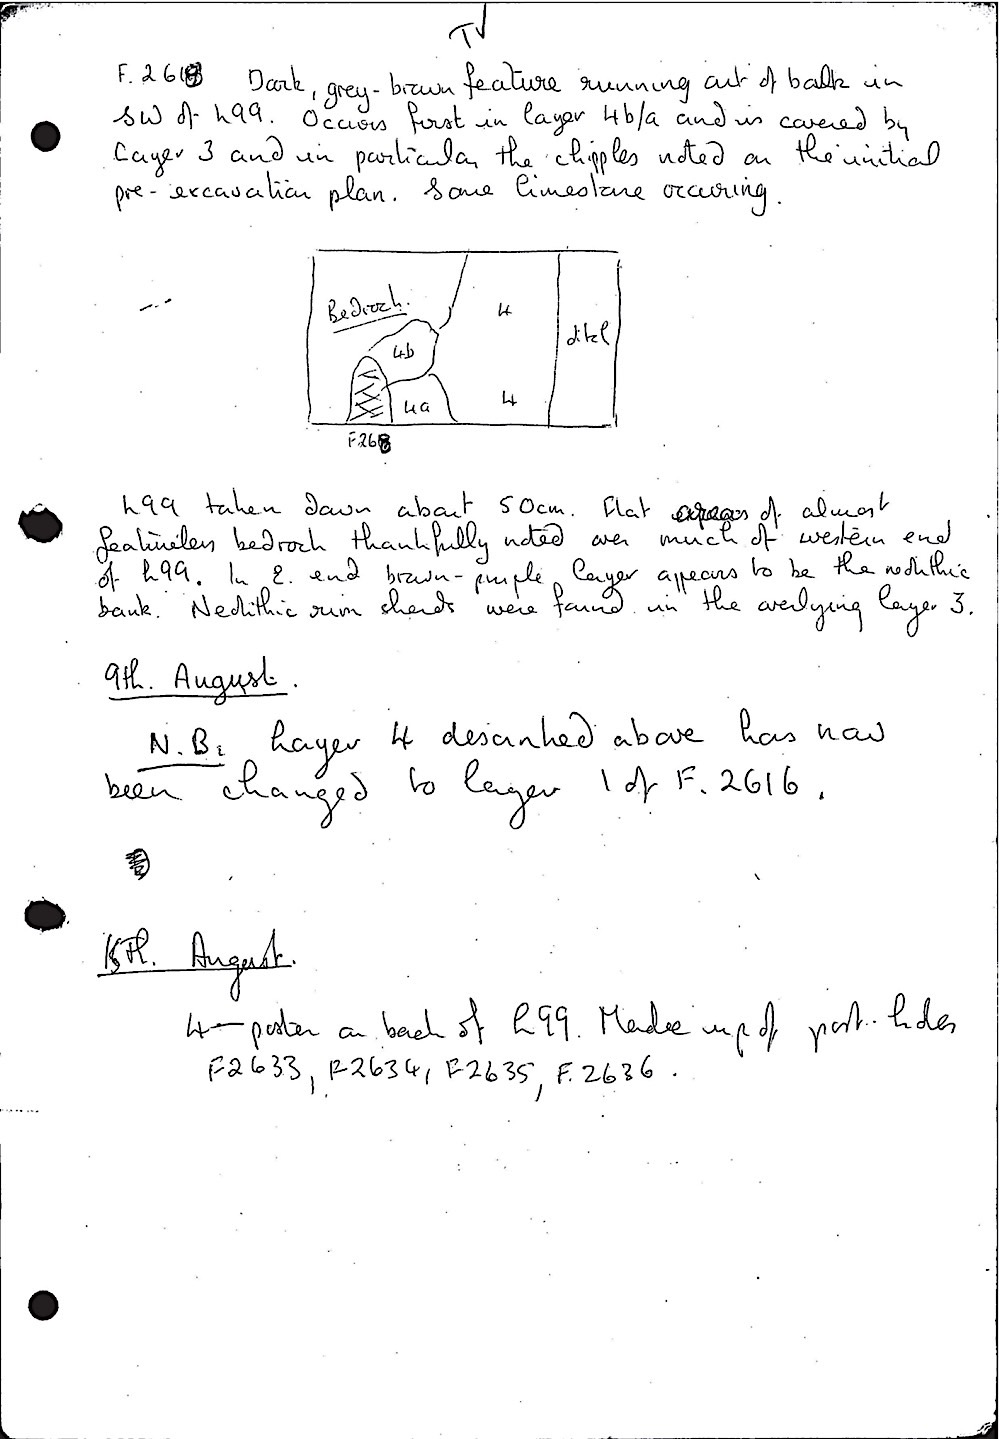 TV
F. 2618 Dark, grey-brown feature running out of balk in
SW of L99. Occurs first in layer 4b/a and is covered by
Layer 3 and in particular the chipples noted on the initial
pre-excavation plan. Some limestone occuring.
Bedrock.
4
ditch
4b
4a
4
F.268
L99 taken down about 50cm. Flat areas of almost
featureless bedrock thankfully noted over much of western end
of L99. In E. end brown-purple layer appears to be the neolithic
bank. Neolithic rim sherds were found in the overlying layer 3.
9th. August.
N.B: Layer 4 described above has now
been changed to layer 1 of F. 2616.
15th. August.
4-poster on back of L99. Made up of post-holes
F2633, F2634, F2635, F.2636.